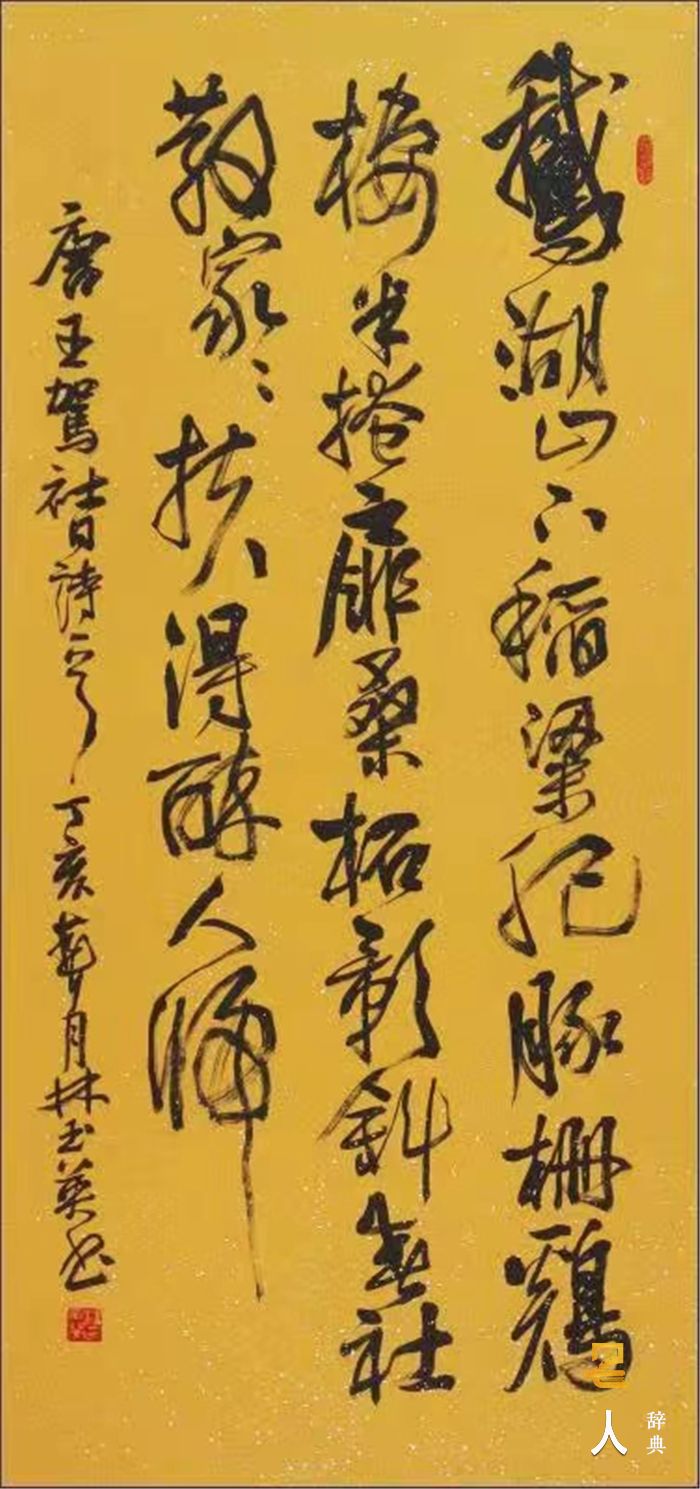 鵝湖山下稻梁肥豚柵鷄
棲半掩扉桑柘影斜春社
散家〻扶得醉人歸
唐王駕社日詩一首 丁亥月林玉英书
人
辞典